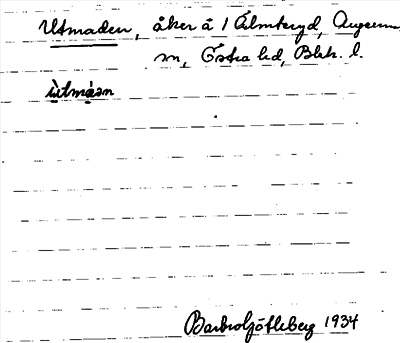 Utmaden, åker å 1 Älmteryd, Augerums
sn, Östra hd, Blek. l.
ùtmáən
Barbro Götleberg 1934